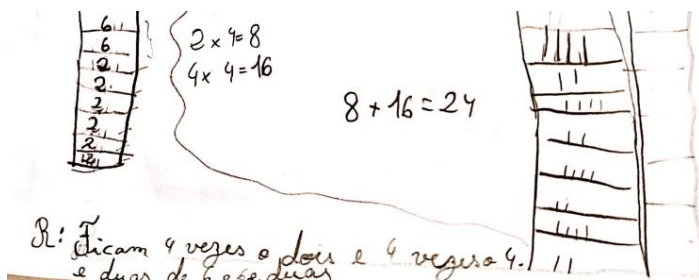 6
6
2
2
2
2
2
2 x 4=8
4x 4=16
8+16=24
R: Ficam 4 vezes o dois e 4 vezes o 4.
e duas de 6